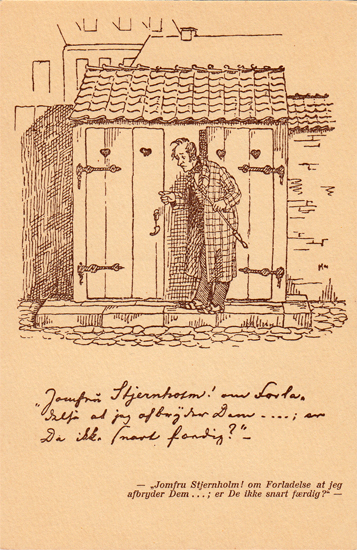 „Jomfru Stjernholm! om Forla-
delse at jeg afbryder Dem....; er
De ikke snart færdig?"—
— „Jomfru Stjernholm! om Forladelse at jeg
afbryder Dem...; er De ikke snart færdig?" —